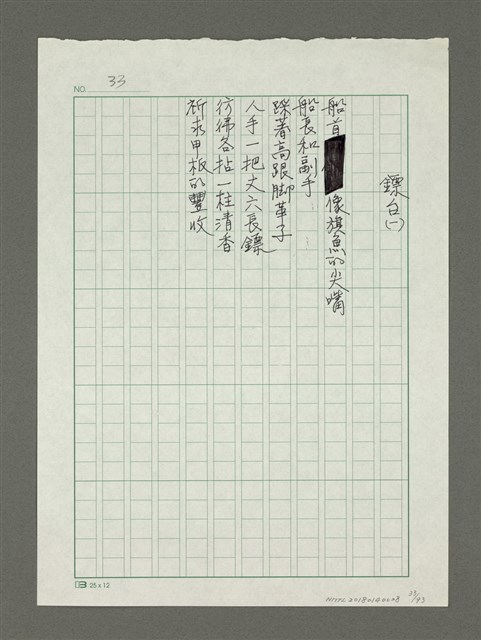 NO. 33
鏢台(一)
船首像旗魚的尖嘴
船長和副手
踩著高跟腳革子
人手一把丈六長鏢
彷彿各拈一柱清香
祈求甲板的豐收
25 x 12
NMTL20180140008
33/93